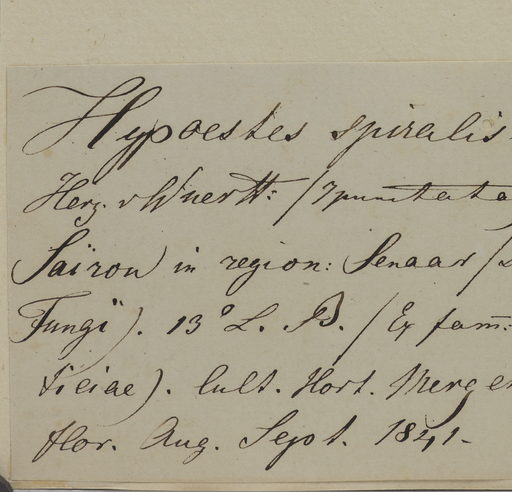 Hypoestes spiralis
Herz. v Wuertt: /?punctata
Saïrou in region: Senaar /
Fungï). 13° L. B. / Ex fam:
ticiae). Cult. Hort. Mergen
flor. Aug. Sept. 1841.